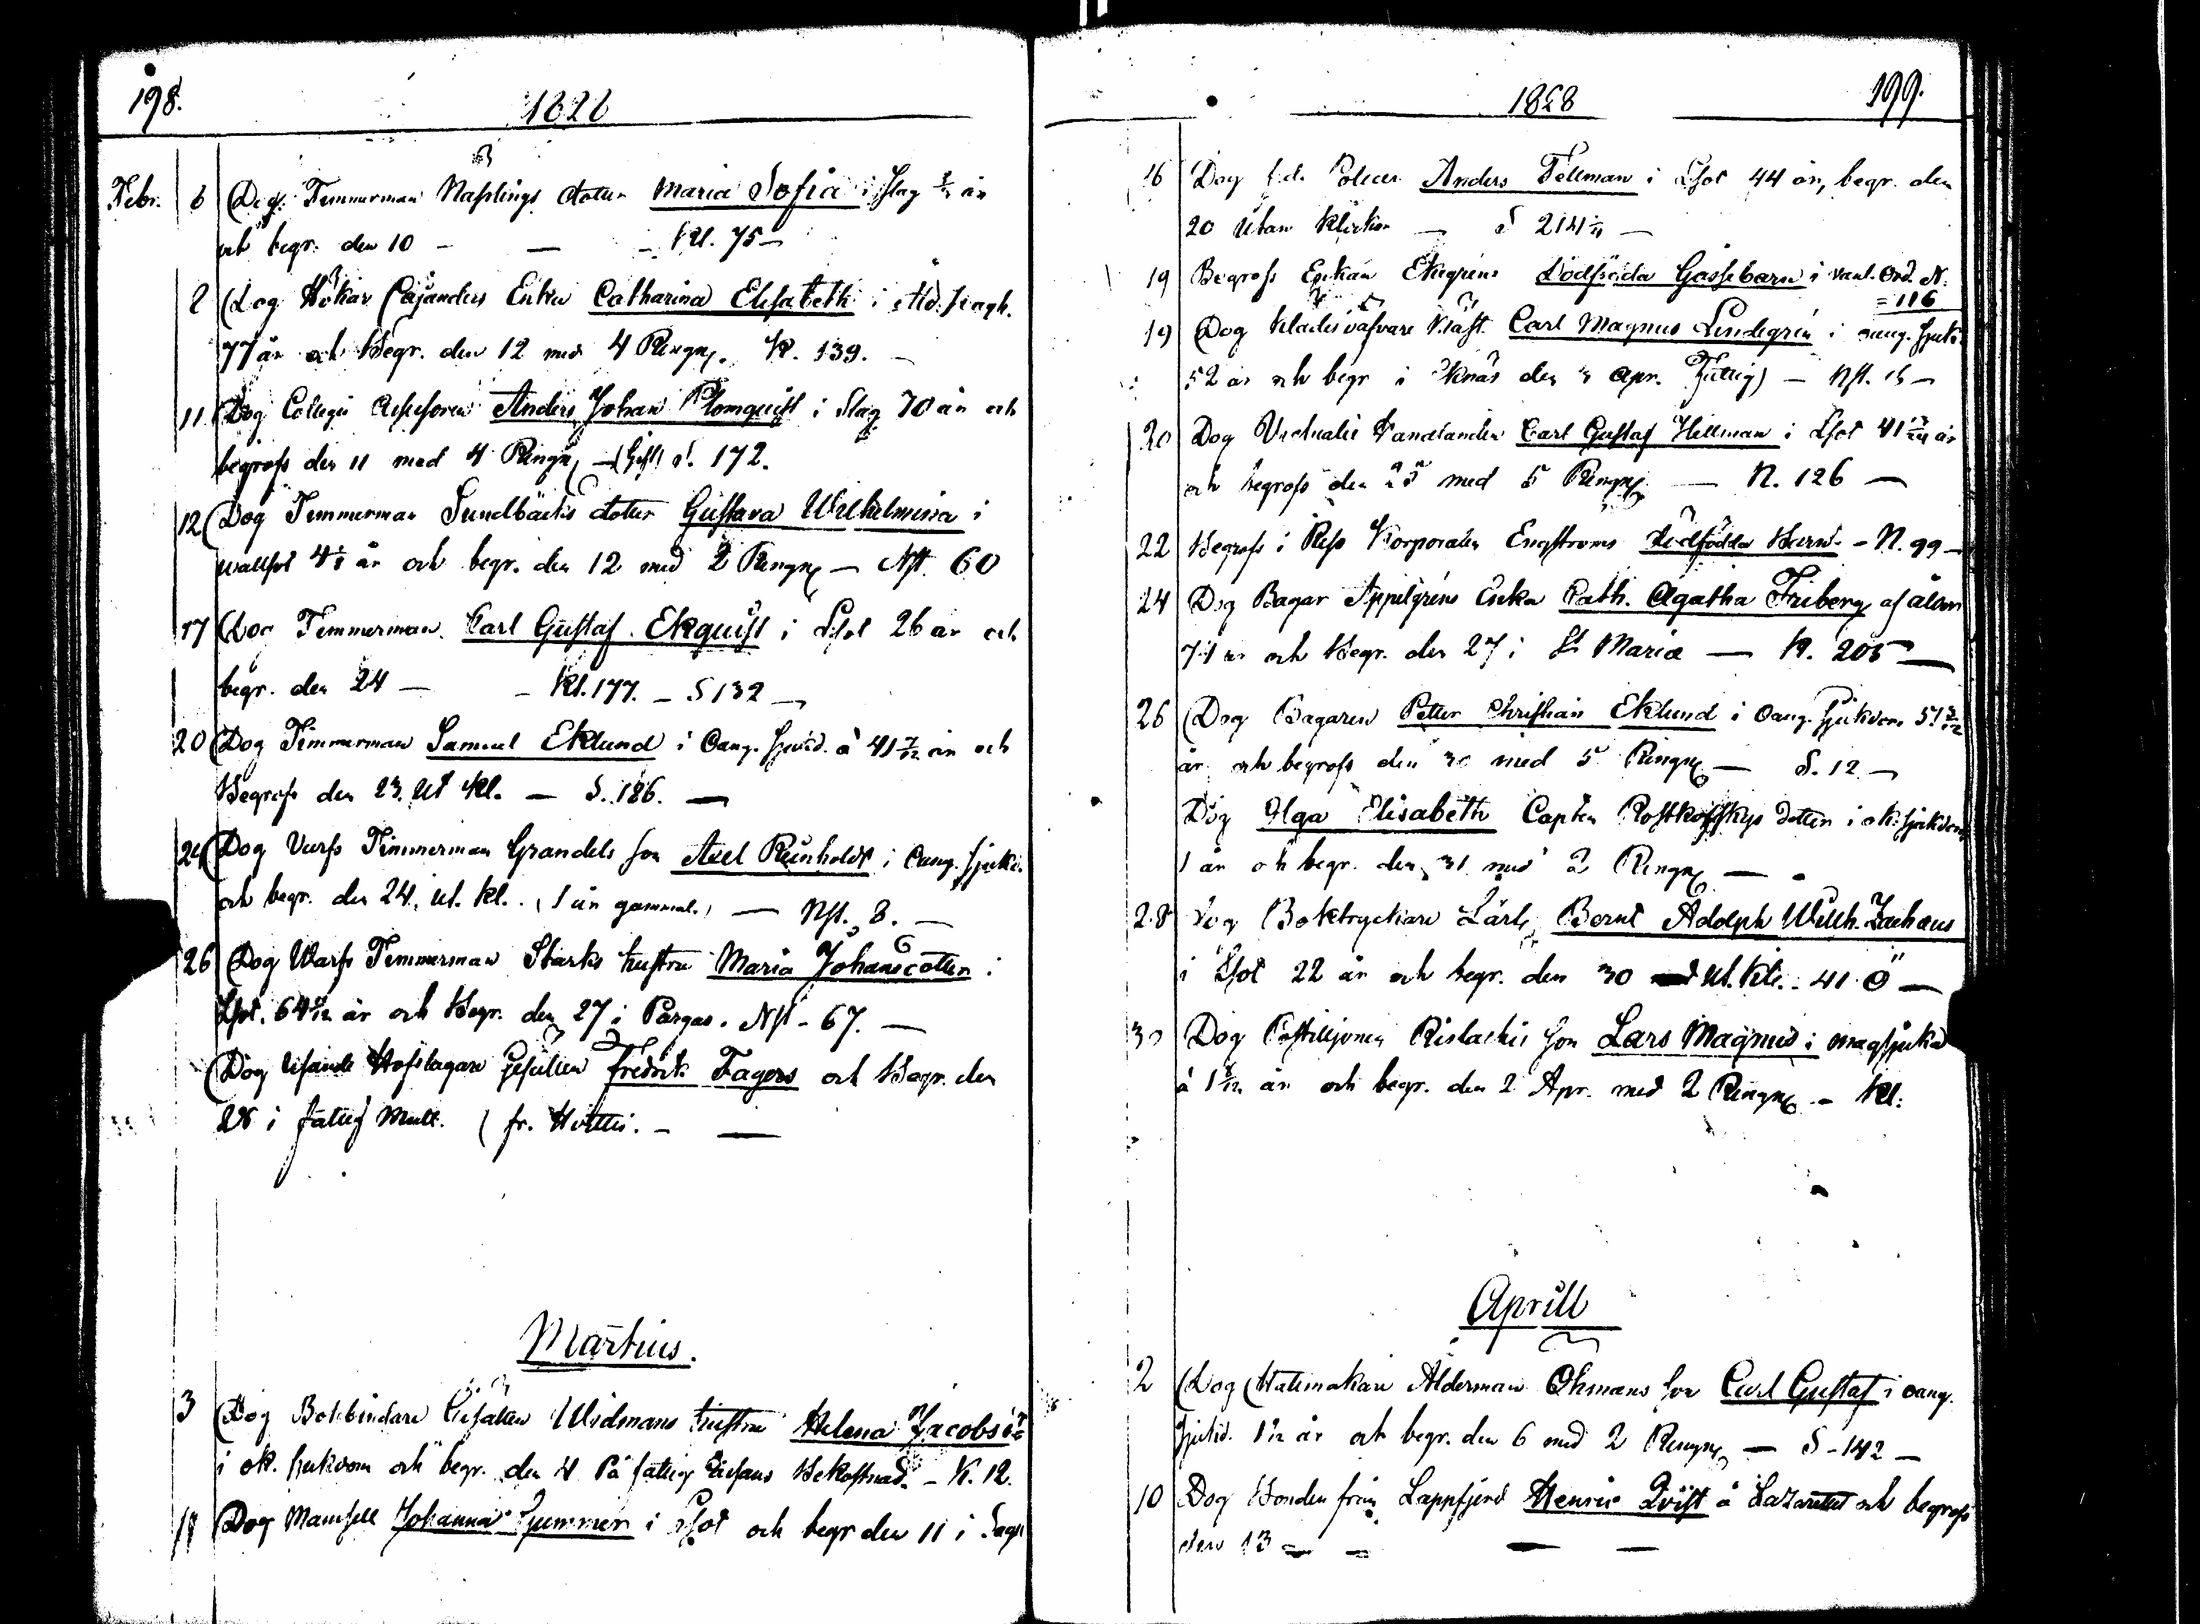 198.
1828
Febr. 6 Dog Timmerman Nasslings dotter Maria Sofia i Slag år
och begr. den 10 — — Kl. 75 —
8 Dog Hökar Cajanders Enka Catharina Elisabeth i
77 år och Begr. den 12 med 4 Ringn. K. 139. —
11 Dog Collegii Assessoren Anders Johan Plomquist i Slag 70 år och
begrofs den 11 med 4 Ringn — 172.
12 Dog Timmerman Sundbäcks dotter Gustava Wilhelmina i
år och begr. den 12 med 2 Ringn — Nst. 60
17 Dog Timmerman Carl Gustaf Ekquist i Lsot 26 år och
begr. den 24 — — Kl. 177. — S 132 —
20 Dog Timmerman Samuel Eklund i Oang. Sjukd. à 41 7/12 år och
Begrofs den 23. Ut Kl. — S. 186. —
24 Dog Varfs Timmerman Grandels son Axel Reinholdt i Oang. Sjukd.
och begr. den 24. ut. Kl. (1 år gammal.) — Nst. 8. —
26 Dog Warfs Timmerman Starks hustru Maria Johansdotter i
Lsot. år och Begr. den 27 i Pargas. Nst - 67. —
Dog Hofslagare Gesällen Fredrik Fagers och Begr. den
28 i fattig Mull. (fr. —
Martius.
3 Dog Bokbindare Gesällen Widmans hustru Helena Jacobsd:r
i ok. sjukdom och begr. den 4 På fattig Bekostnad. — K. 12.
11 Dog Mamsell Johanna i Lsot och begr den 11 i Sagu
1828
199.
16 Dog f.d. Anders Fellman i Lsot 44 år, begr. den
20 Utan Klockor — S 214 —
19 Begrofs Enkan Ekegrens Dödfödda Gossebarn i vanl. Ord. N.
= 116
19 Dog Klädesväfvare Carl Magnus Lindegrén i oang. sjukd.
52 år och begr i den 3 Apr. Fattig) — Nst. —
20 Dog Victualie Handlanden Carl Gustaf Hellman i Lsot 41 år
och begrofs den 25 med 5 Ringn — N. 126 —
22 Begrofs i Korporalen Engströms dödfödda Barn. - N. 99 —
24 Dog Bagar Appelgrens Enka Cath. Agatha Friberg af ålder
71 år och Begr. den 27 i St Mariæ — K. 205 —
26 Dog Bagaren Petter Christian Eklund i Oang. Sjukdom
år och begrofs den 30 med 5 Ringn — S. 12 —
Dog Olga Elisabeth Capten Rostkoffskys dotter i ok. sjukdom
1 år och begr. den 31 med 2 Ringn —
28 Dog Boktryckare Lärl. Bernt Adolph Wilh. Zachæus
i Lsot 22 år och begr. den 30 ut. Kl. 41 Ö —
30 Dog Postiljonen Rislackis son Lars Magnus i magsjuka
à år och begr. den 2 Apr. med 2 Ringn — Kl:
Aprill
2 Dog Hattmakare Ålderman Öhmans son Carl Gustaf i oang.
sjukd. år och begr. den 6 med 2 Ringn — S - 142 —
10 Dog Bonden från Lappfjerd Henric Qvist å Lazarettet och begrofs
den 13 — — — —